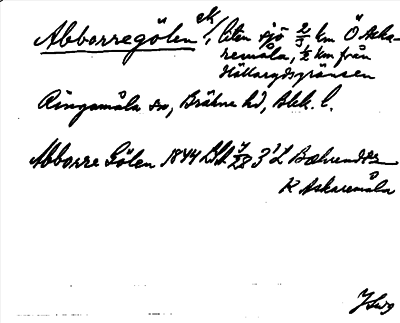 Abborregölen, liten sjö 2/3 km Ö Aska-
remåla, ½ km från
Hällarydsgränsen
Ringamåla sn, Bräkne hd, Blek. l.
Abborre Gölen 1844
K Askaremåla